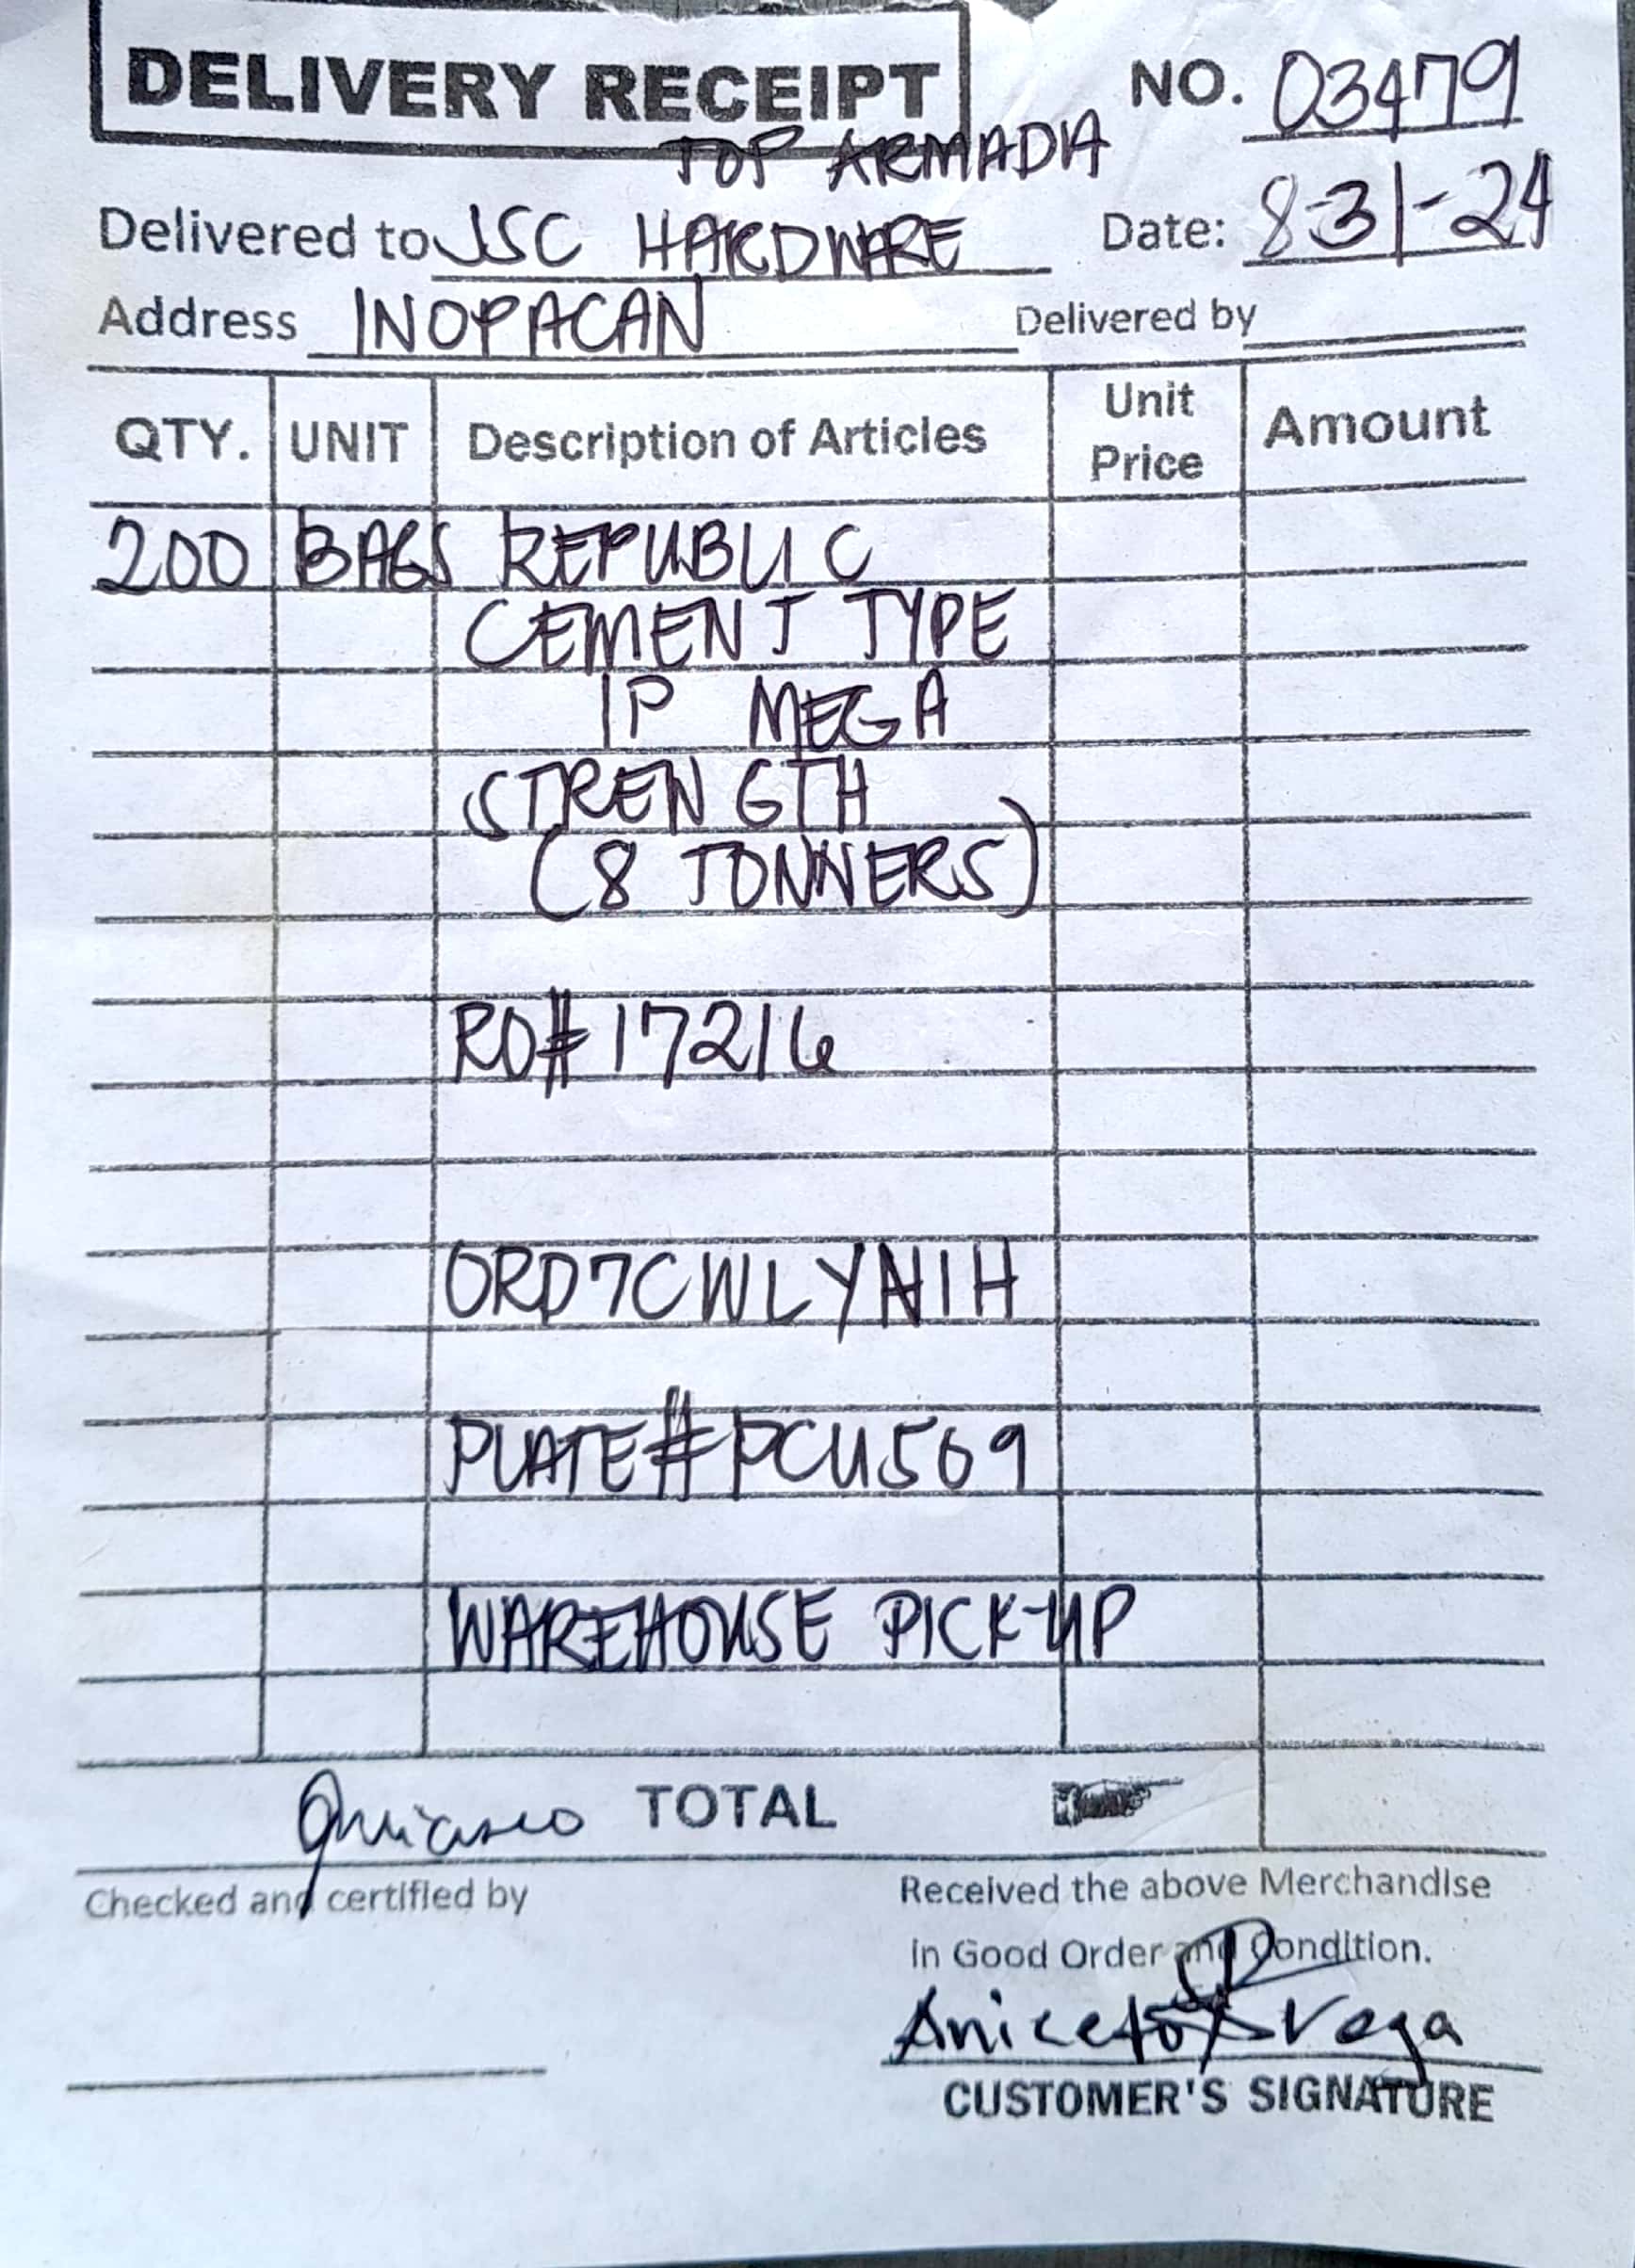 DELIVERY RECEIPT
NO. 03479
TOP ARMADA
Delivered to JSC HARDWARE
Date: 8-31-24
Address INOPACAN
Delivered by
QTY. UNIT Description of Articles Unit Price Amount
200 BAGS REPUBLIC
CEMENT TYPE
1P MEGA
STRENGTH
(8 TONNERS)
RO#17216
ORD7CWLYNIH
PLATE#PCU569
WAREHOUSE PICK-UP
TOTAL
Checked and certified by
Received the above Merchandise
in Good Order and Condition.
Aniceto Vega
CUSTOMER'S SIGNATURE